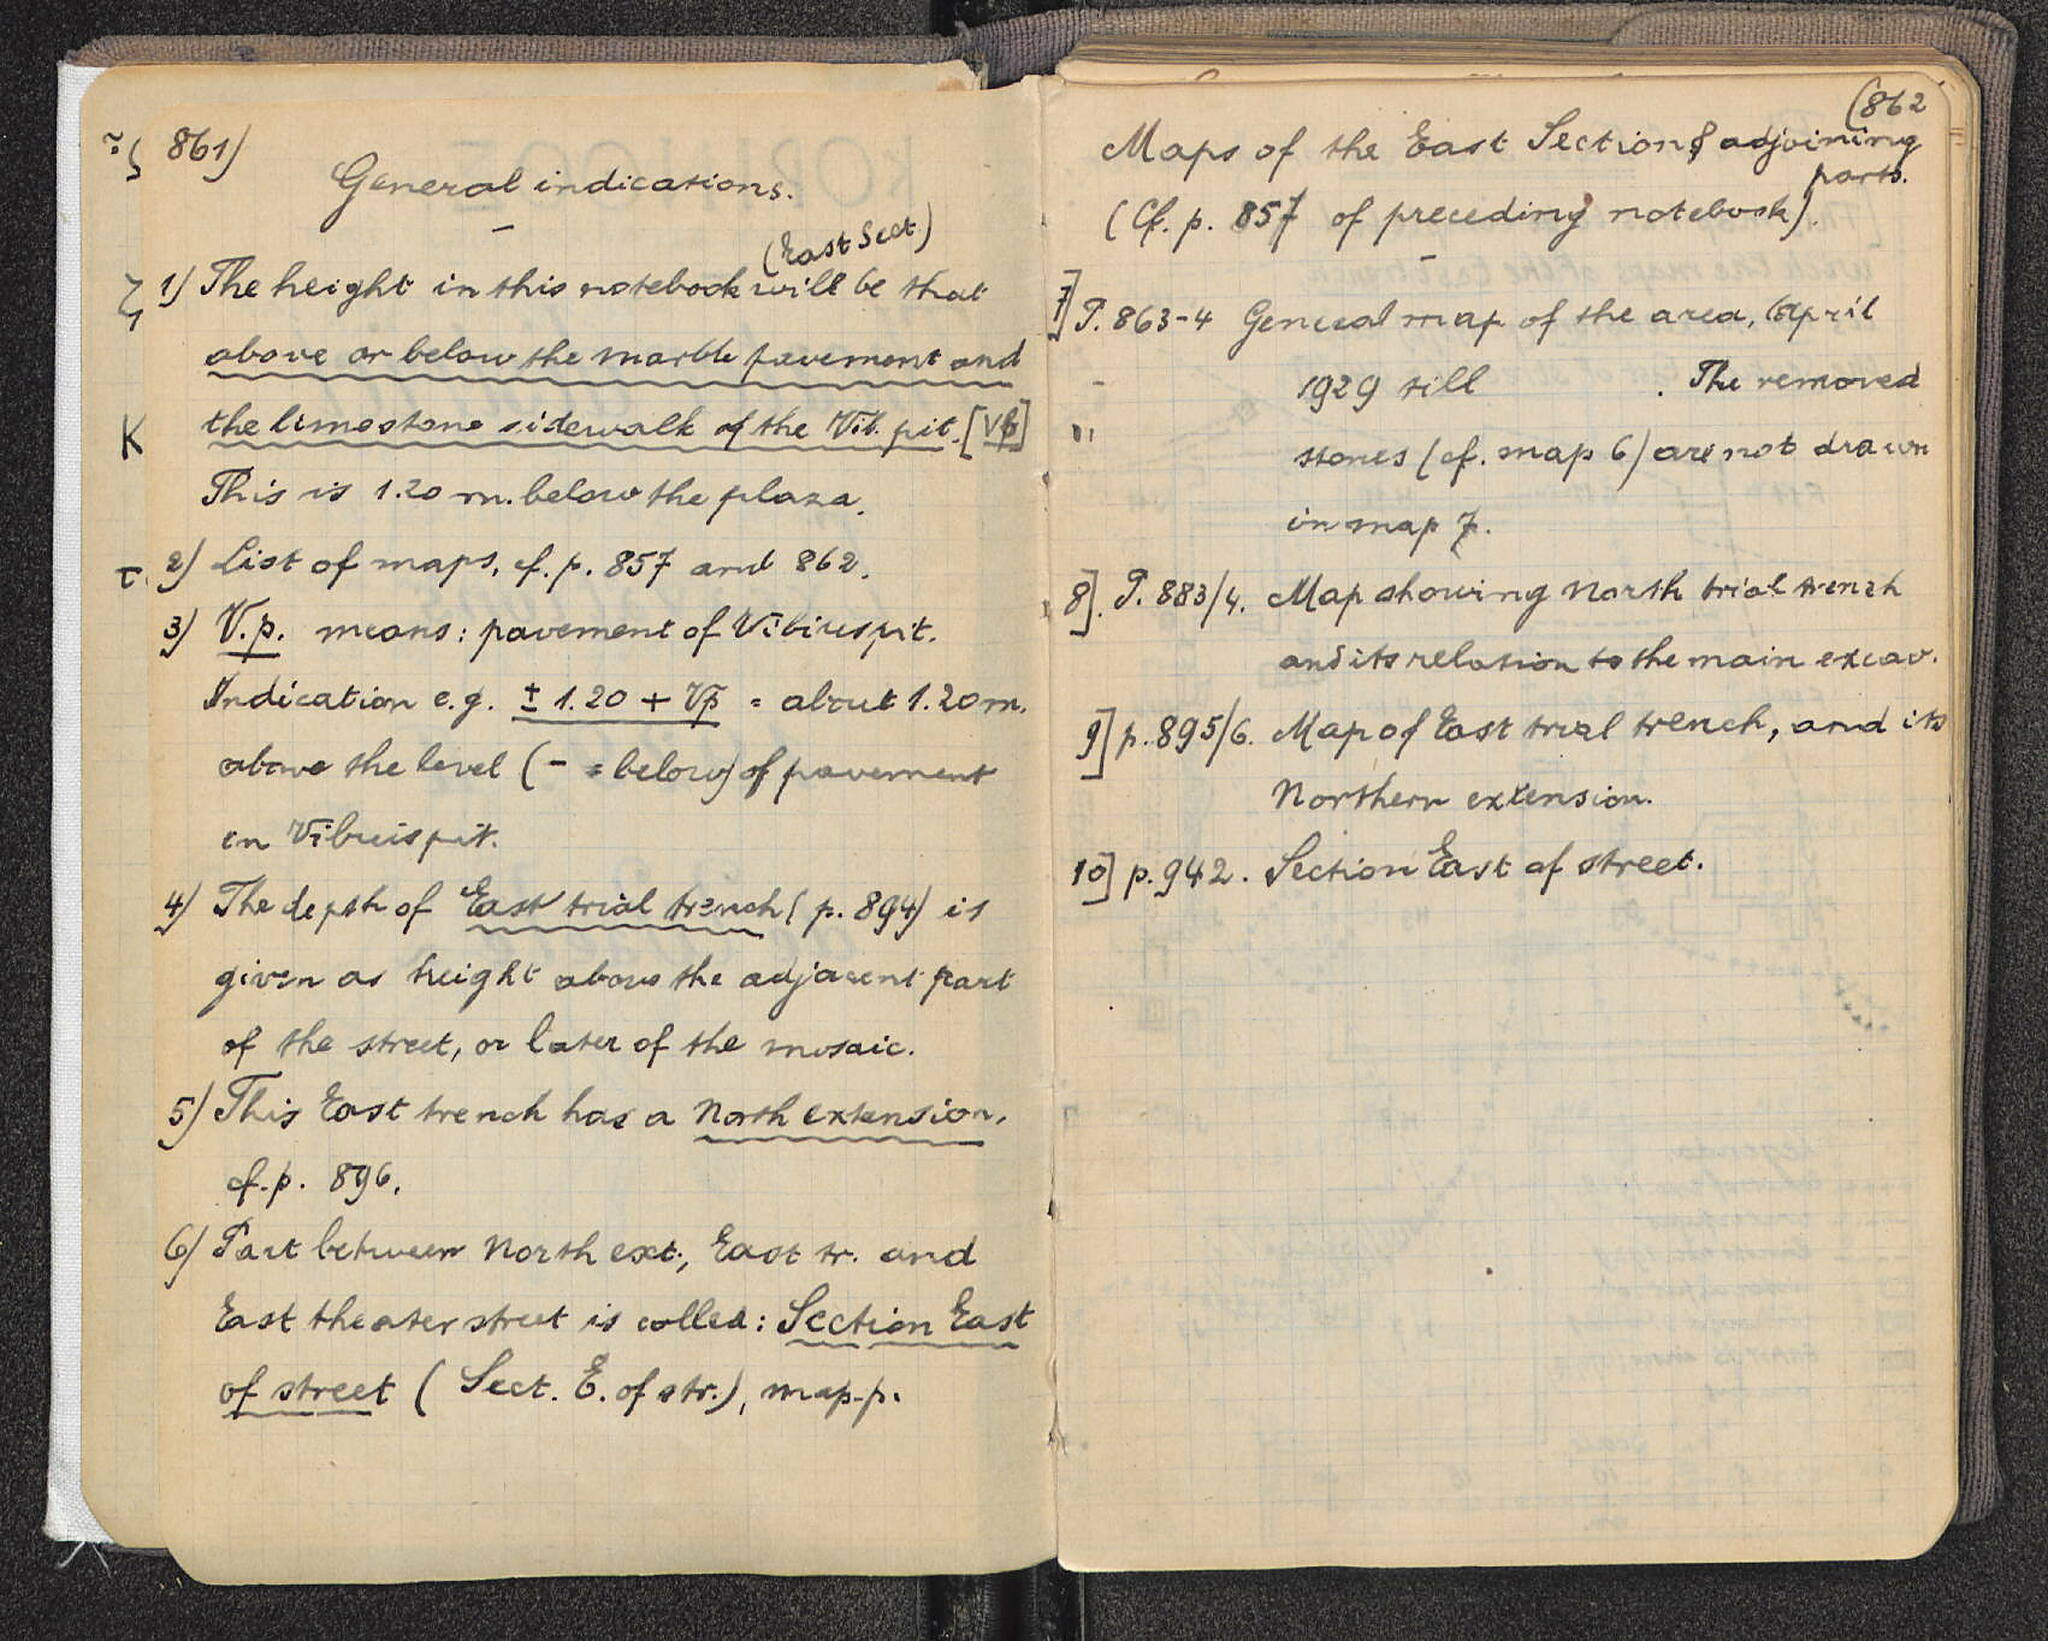 861)
General indications.
(East Sect.)
1) The height in this notebook will be that
above or below the marble pavement and
the limestone sidewalk of the Vib. pit. [Vp]
This is 1.20 m. below the plaza.
2) List of maps, cf. p. 857 and 862.
3) V.p. means: pavement of Vibiuspit.
Indication e.g. ± 1.20 + Vp = about 1.20 m.
above the level (- = below) of pavement
in Vibiuspit.
4) The depth of East trial trench (p. 894) is
given as height above the adjacent part
of the street, or later of the mosaic.
5) This East trench has a North extension,
cf. p. 896.
6) Part between North ext., East tr. and
East theater street is called: Section East
of street (Sect. E. of str.), map p.
K
τ.
(862
Maps of the East Section & adjoining
parts.
(Cf. p. 857 of preceding notebook).
7] P. 863-4 General map of the area, April
1929 till . The removed
stones (cf. map 6) are not drawn
in map 7.
8]. P. 883/4. Map showing North trial trench
and its relation to the main excav.
9] p. 895/6. Map of East trial trench, and its
Northern extension.
10] p. 942. Section East of street.